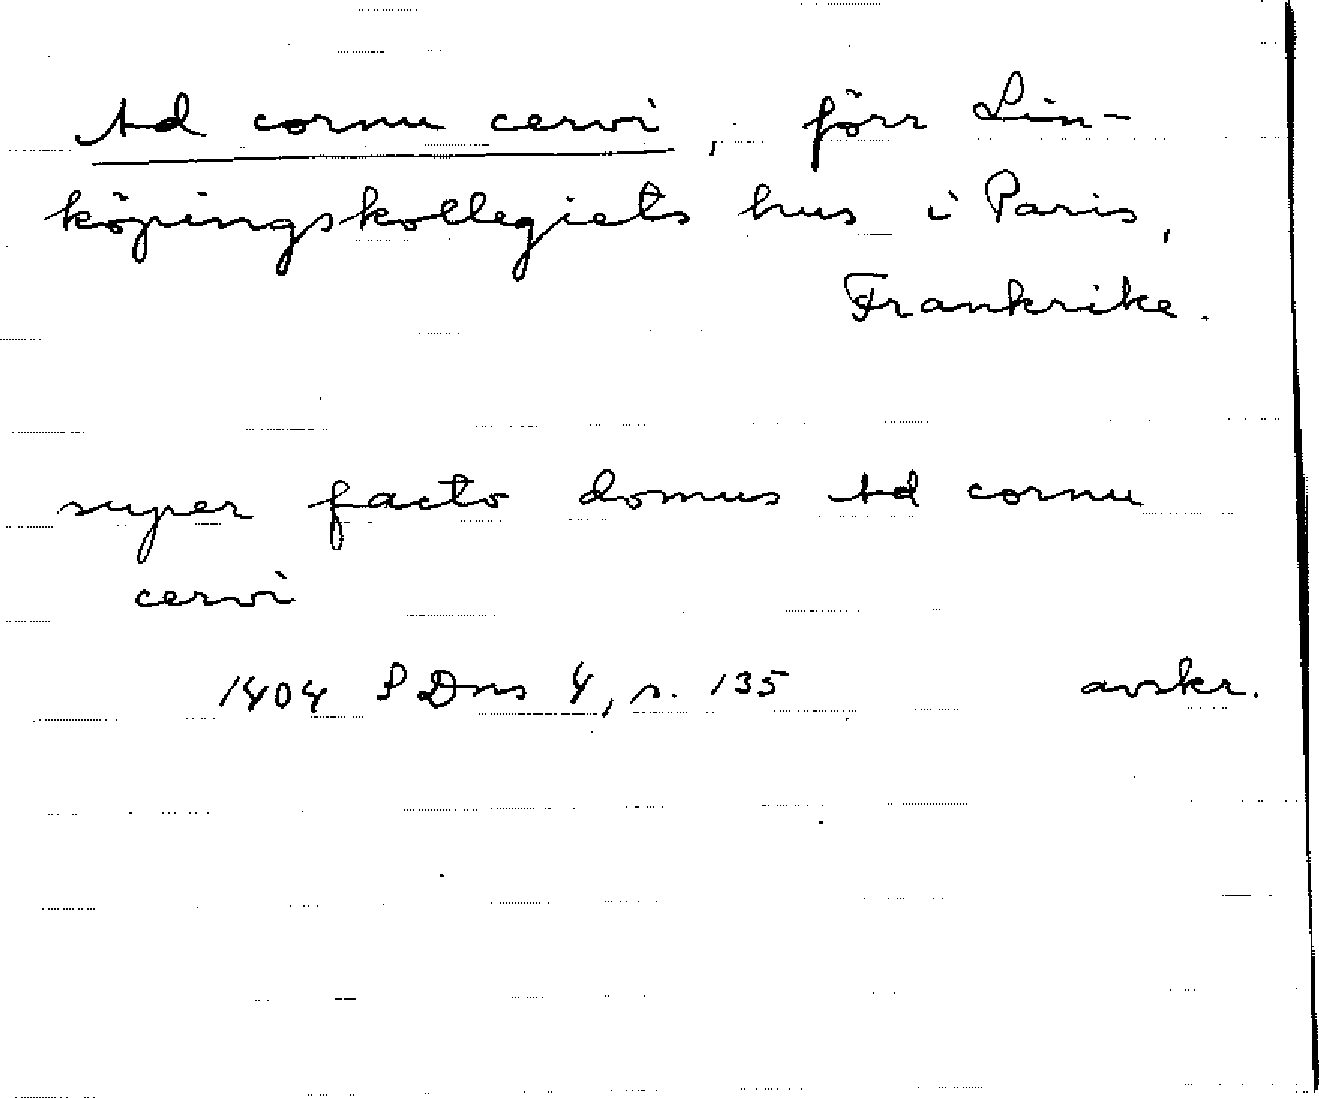 Ad cornu cervi, förr Lin-
köpingskollegiets hus i Paris,
Frankrike.
super facto domus Ad cornu
cervi
1404 PDns 4, s. 135 avskr.